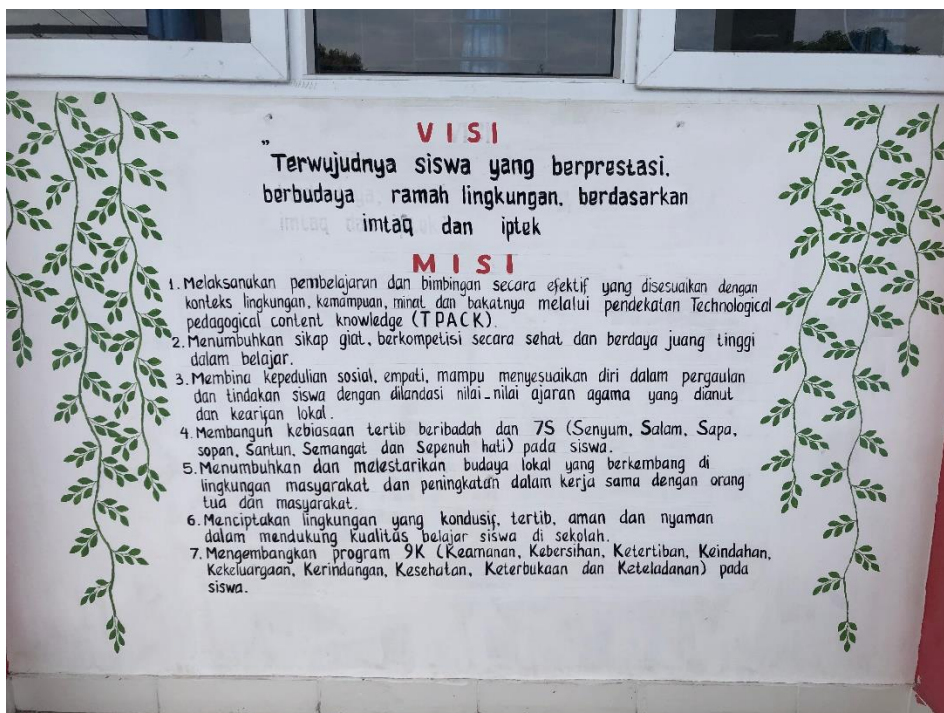 VISI
" Terwujudnya siswa yang berprestasi,
berbudaya, ramah lingkungan, berdasarkan
imtaq dan iptek
MISI
1. Melaksanakan pembelajaran dan bimbingan secara efektif yang disesuaikan dengan
konteks lingkungan, kemampuan, minat dan bakatnya melalui pendekatan Technological
pedagogical content knowledge (TPACK).
2. Menumbuhkan sikap giat, berkompetisi secara sehat dan berdaya juang tinggi
dalam belajar.
3. Membina kepedulian sosial, empati, mampu menyesuaikan diri dalam pergaulan
dan tindakan siswa dengan dilandasi nilai-nilai ajaran agama yang dianut
dan kearifan lokal.
4. Membangun kebiasaan tertib beribadah dan 7S (Senyum, Salam, Sapa,
sopan, Santun, Semangat dan Sepenuh hati) pada siswa.
5. Menumbuhkan dan melestarikan budaya lokal yang berkembang di
lingkungan masyarakat dan peningkatan dalam kerja sama dengan orang
tua dan masyarakat.
6. Menciptakan lingkungan yang kondusif, tertib, aman dan nyaman
dalam mendukung kualitas belajar siswa di sekolah.
7. Mengembangkan program 9K (Keamanan, Kebersihan, Ketertiban, Keindahan,
Kekeluargaan, Kerindangan, Kesehatan, Keterbukaan dan Keteladanan) pada
siswa.